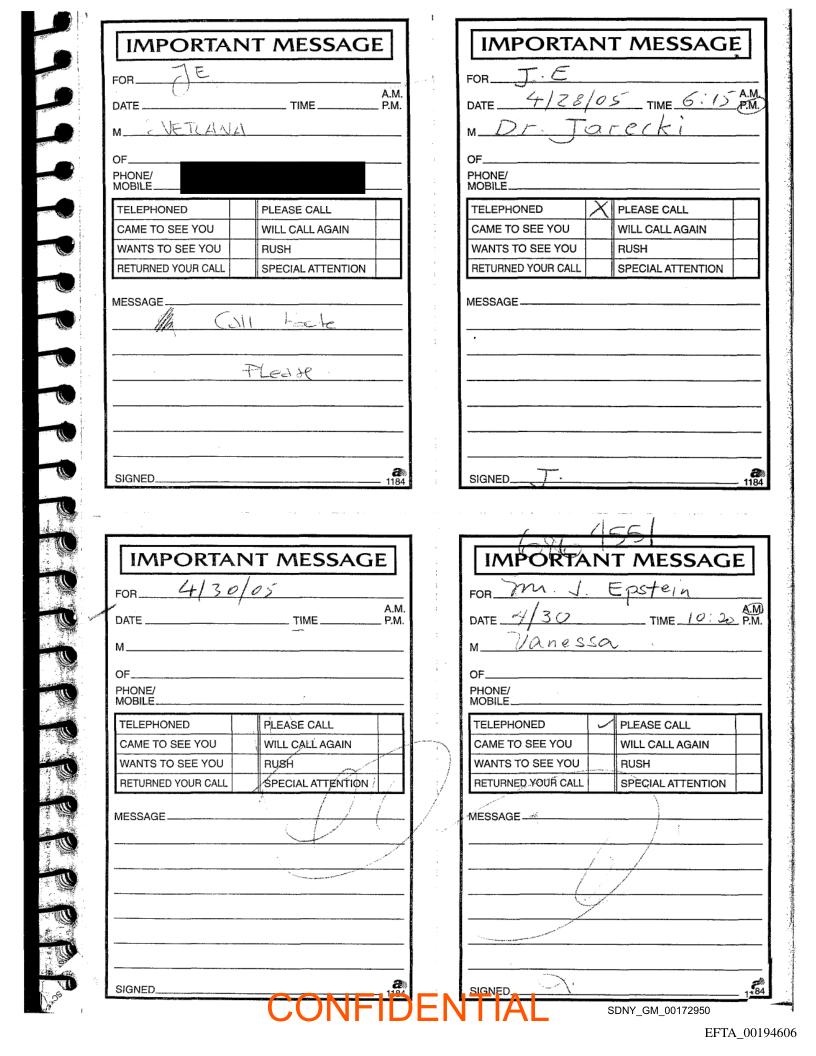 IMPORTANT MESSAGE
FOR JE
A.M.
DATE TIME P.M.
M SVETLANA
OF
PHONE/
MOBILE
TELEPHONED PLEASE CALL
CAME TO SEE YOU WILL CALL AGAIN
WANTS TO SEE YOU RUSH
RETURNED YOUR CALL SPECIAL ATTENTION
MESSAGE
Call
Please
SIGNED
1184
IMPORTANT MESSAGE
FOR J.E
A.M.
DATE 4/28/05 TIME 6:15 P.M.
M Dr. Jarecki
OF
PHONE/
MOBILE
TELEPHONED X PLEASE CALL
CAME TO SEE YOU WILL CALL AGAIN
WANTS TO SEE YOU RUSH
RETURNED YOUR CALL SPECIAL ATTENTION
MESSAGE
SIGNED J.
1184
IMPORTANT MESSAGE
FOR 4/30/05
A.M.
DATE TIME P.M.
M
OF
PHONE/
MOBILE
TELEPHONED PLEASE CALL
CAME TO SEE YOU WILL CALL AGAIN
WANTS TO SEE YOU RUSH
RETURNED YOUR CALL SPECIAL ATTENTION
MESSAGE
SIGNED
1184
IMPORTANT MESSAGE
FOR Mr. J. Epstein
A.M.
DATE 4/30 TIME 10:20 P.M.
M Vanessa
OF
PHONE/
MOBILE
TELEPHONED ✓ PLEASE CALL
CAME TO SEE YOU WILL CALL AGAIN
WANTS TO SEE YOU RUSH
RETURNED YOUR CALL SPECIAL ATTENTION
MESSAGE
SIGNED
1184
CONFIDENTIAL
SDNY_GM_00172950
EFTA_00194606